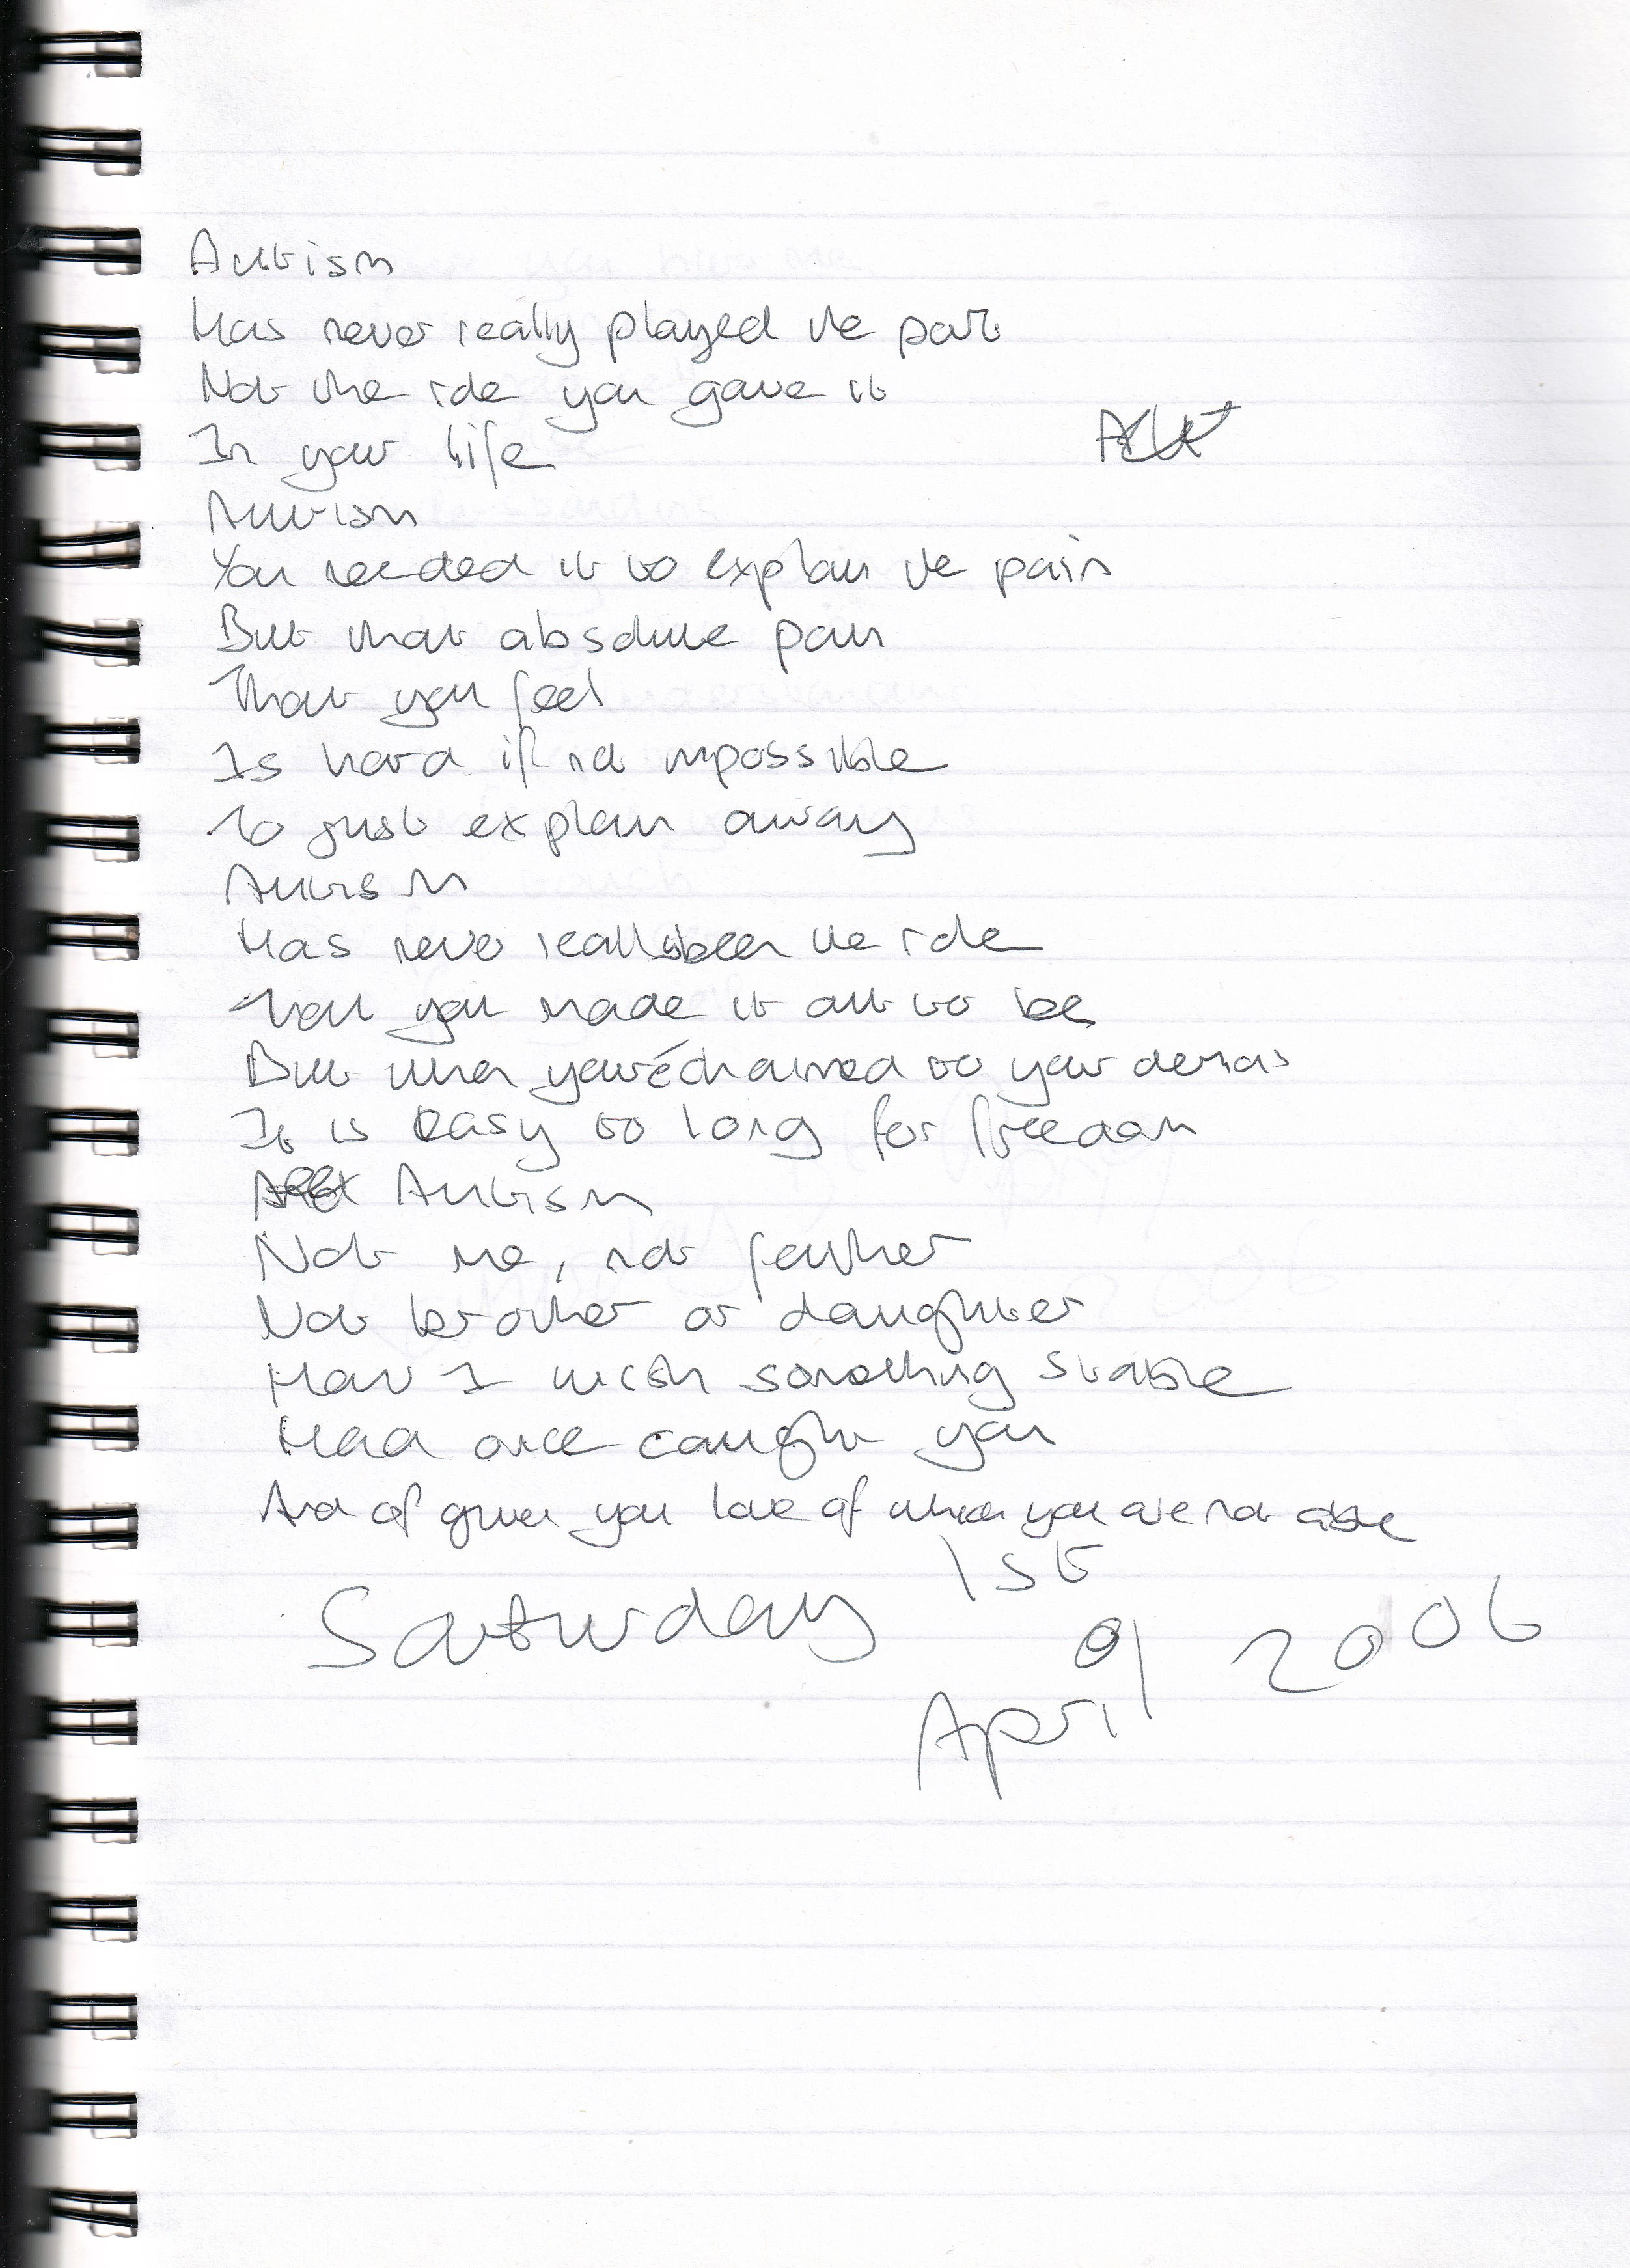 Autism
Has never really played the part
Not the role you gave it
In your life
Autism
You needed it to explain the pain
But that absolute pain
That you feel
Is hard if not impossible
To just explain away
Autism
Has never really been the role
That you made it out to be
But when you're chained to your demons
It is easy to long for freedom
Autism
Not me, not father
Not brother or daughter
How I wish something stable
Had once caught you
And of given you love of which you are not able
Saturday 1st of April 2006